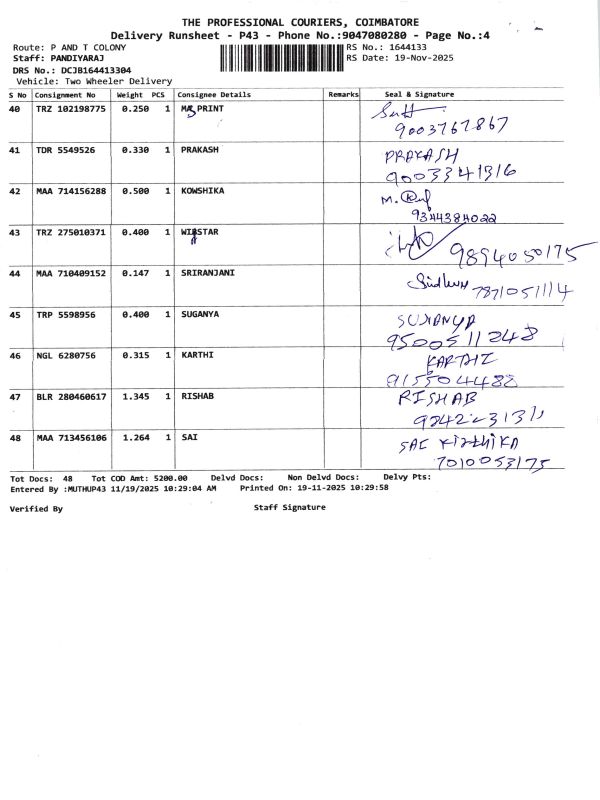 THE PROFESSIONAL COURIERS, COIMBATORE
Delivery Runsheet - P43 - Phone No.:9047080280 - Page No.:4
Route: P AND T COLONY RS No.: 1644133
Staff: PANDIYARAJ RS Date: 19-Nov-2025
DRS No.: DCJB164413304
Vehicle: Two Wheeler Delivery
S No Consignment No Weight PCS Consignee Details Remarks Seal & Signature
40 TRZ 102198775 0.250 1 PRINT
9003767867
41 TDR 5549526 0.330 1 PRAKASH PRAKASH
9003341316
42 MAA 714156288 0.500 1 KOWSHIKA M.
9344384022
43 TRZ 275010371 0.400 1 9894050175
44 MAA 710409152 0.147 1 SRIRANJANI 7871051114
45 TRP 5598956 0.400 1 SUGANYA SUGANYA
9500511248
46 NGL 6280756 0.315 1 KARTHI KARTHI
9155044488
47 BLR 280460617 1.345 1 RISHAB RISHAB
48 MAA 713456106 1.264 1 SAI SAI
7010053175
Tot Docs: 48 Tot COD Amt: 5200.00 Delvd Docs: Non Delvd Docs: Delvy Pts:
Entered By :MUTHUP43 11/19/2025 10:29:04 AM Printed On: 19-11-2025 10:29:58
Verified By Staff Signature